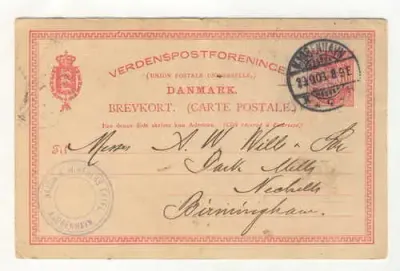 VERDENSPOSTFORENINGEN
(UNION POSTALE UNIVERSELLE.)
DANMARK.
BREVKORT. (CARTE POSTALE.)
(Paa denne Side skrives kun Adressen.) (Côté réservé à l'adresse.)
Til
Messrs A. W. Wills & Son
Park Mills
Nechells
Birmingham.
KJØBENHAVN